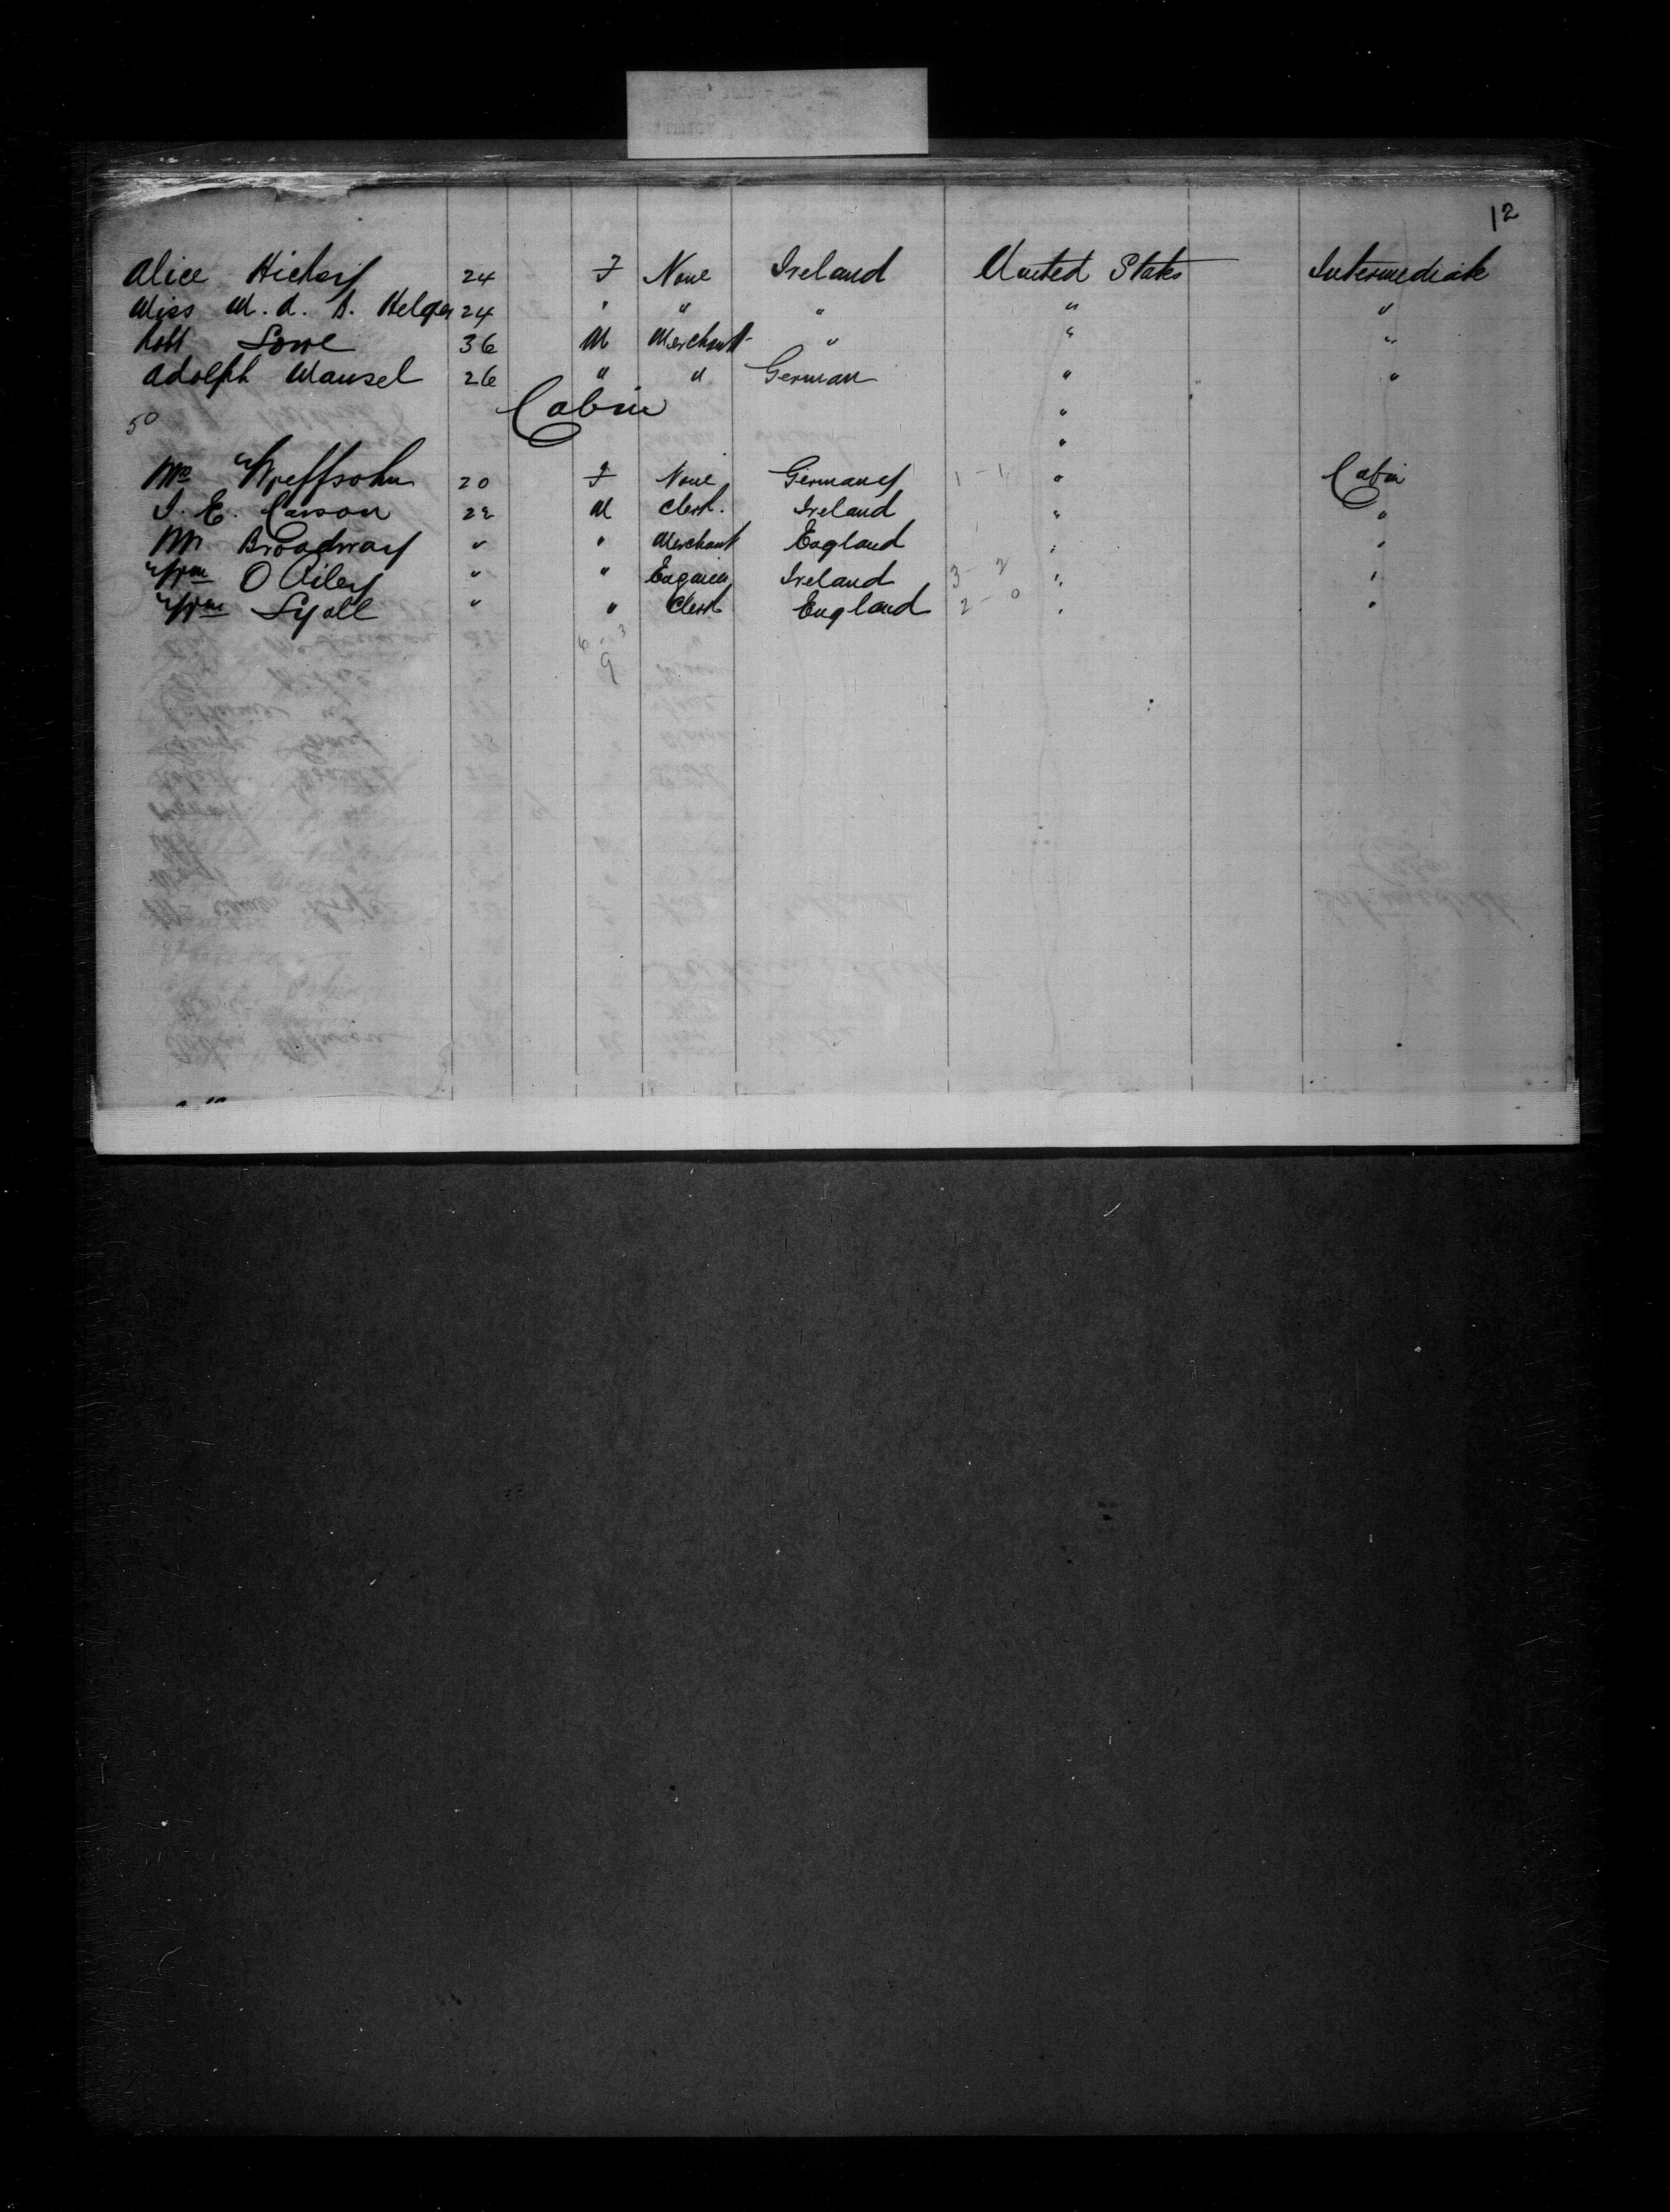 12
Alice Hickey 24 F None Ireland United States Intermediate
Miss M. A. B. Helger 24 " " " " "
Robt Lowe 36 M Merchant " " "
Adolph Mansel 26 " " German " "
50 Cabin "
"
Mrs Wreffsohn 20 F None Germany 1 - 1 " Cabin
J. E. Carson 22 M Clerk. Ireland " "
Mr Broadway " " Merchant England " "
Wm O Riley " " Engineer Ireland 3 - 2 " "
Wm Lyall " " Clerk England 2 - 0 " "
6 - 3
9